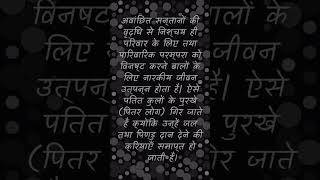 अवांछित सन्तानों की
वृद्धि से निश्चय ही
परिवार के लिए तथा
पारिवारिक परम्परा को
विनष्ट करने वालों के
लिए नारकीय जीवन
उत्पन्न होता है। ऐसे
पतित कुलों के पुरखे
(पितर लोग) गिर जाते
हैं क्योंकि उन्हें जल
तथा पिण्ड दान देने की
क्रियाएँ समाप्त हो
जाती हैं।